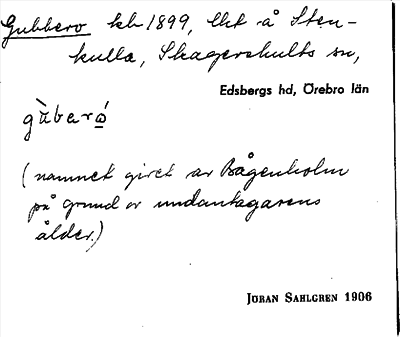 Gubbero kb 1899, lht å Sten-
kulla, Skagershults sn,
Edsbergs hd, Örebro län
gùberó
(namnet givet av Bågenholm
på grund av undantagarens
ålder.)
JÖRAN SAHLGREN 1906